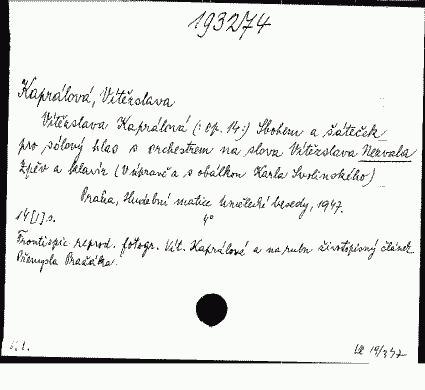 1932/74
Kaprálová, Vítězslava
Vítězslava Kaprálová (: op. 14:) Sbohem a šáteček
pro sólový hlas s orchestrem na slova Vítězslava Nezvala
Zpěv a klavír (V úpravě a s obálkou Karla Svolinského)
Praha, Hudební matice Umělecké besedy, 1947.
14 [1] s. 4°
Frontispic reprod. fotogr. Vít. Kaprálová a na rubu životopisný článek
Přemysla Pražáka.
19/347